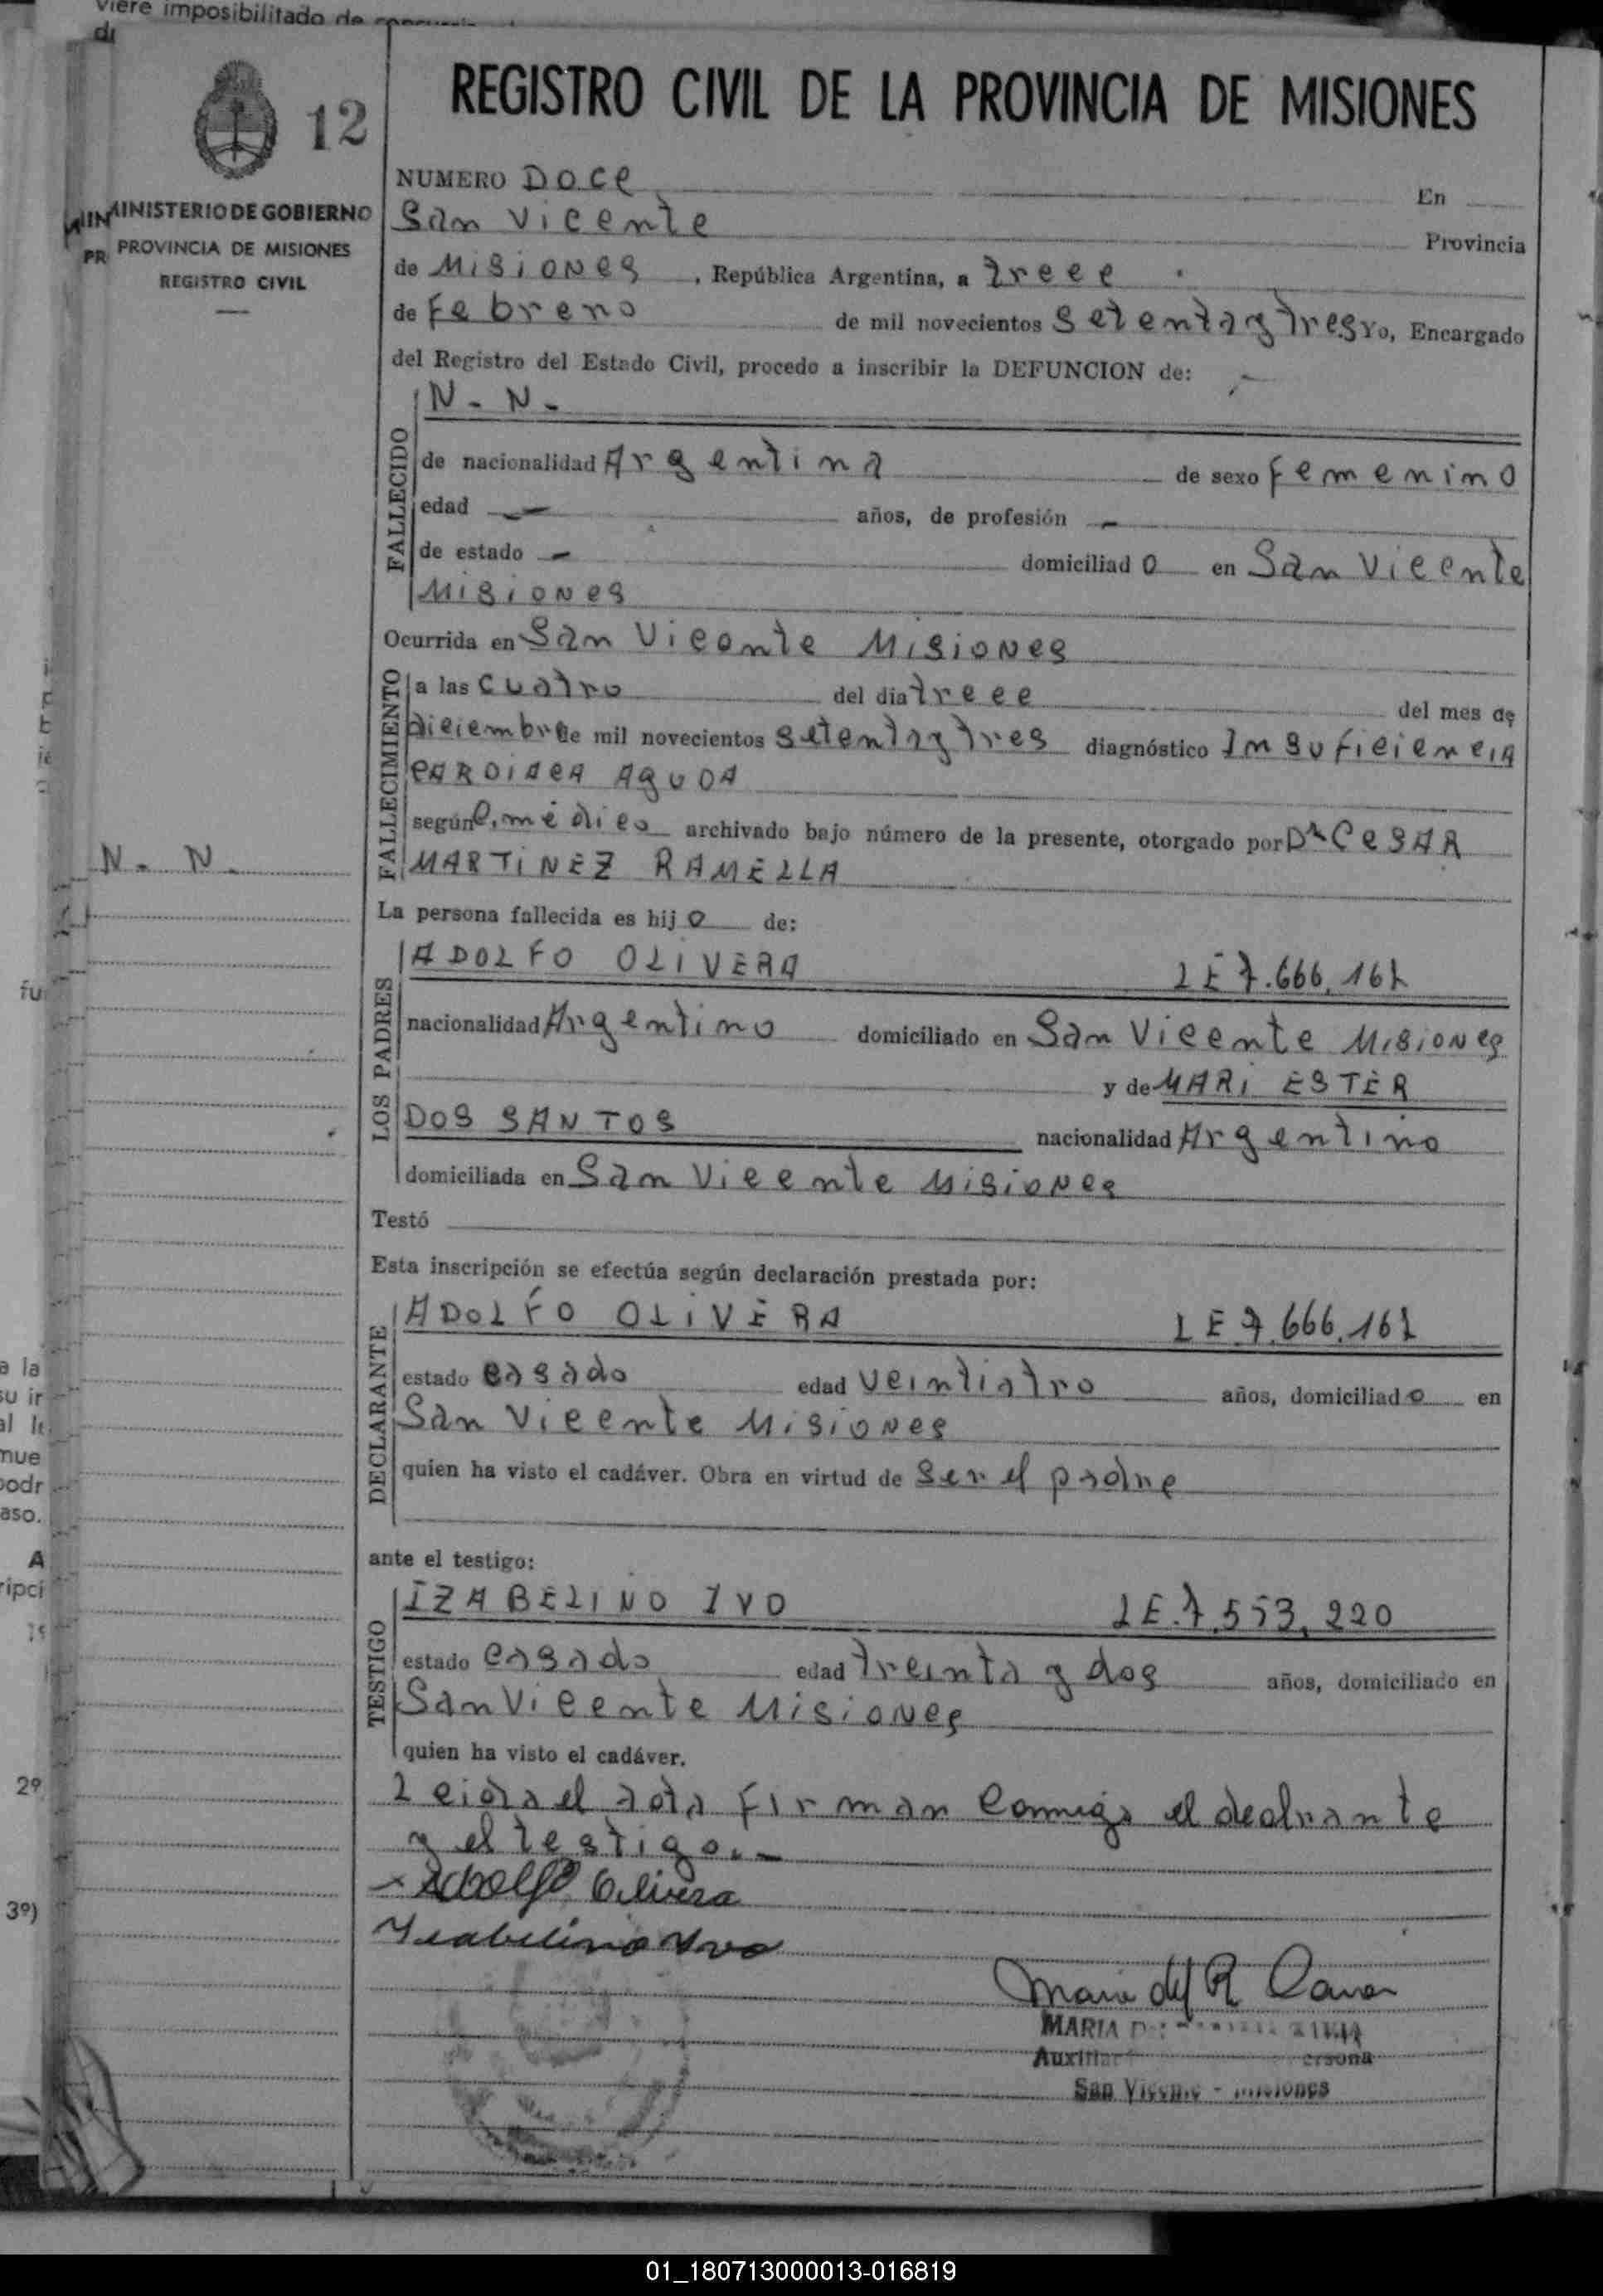 viere imposibilitado de
de
12
REGISTRO CIVIL DE LA PROVINCIA DE MISIONES
MINISTERIO DE GOBIERNO
PROVINCIA DE MISIONES
REGISTRO CIVIL
NUMERO DOCe En
San Vicente Provincia
de MisiONes , República Argentina, a treee
de Febreno de mil novecientos setentaytres Yo, Encargado
del Registro del Estado Civil, procedo a inscribir la DEFUNCION de:
N - N -
FALLECIDO
de nacionalidad Argentina de sexo Femenino
edad - años, de profesión -
de estado - domiciliad o en San Vicente
MisiONes
Ocurrida en San Vicente MisiONes
FALLECIMIENTO
a las cuatro del dia treee del mes de
dieiembre de mil novecientos setentaytres diagnóstico Insufieiencia
CARDIACA AgUDA
según C. médico archivado bajo número de la presente, otorgado por Dr CeSAR
MARTINEZ RAMELLA
N - N.
La persona fallecida es hij o de:
LOS PADRES
ADOLFO OLIVERA LE 7.666.161
nacionalidad Argentino domiciliado en San Vicente MisiONes
y de MARi ESTER
DOS SANTOS nacionalidad Argentino
domiciliada en San Vicente MisiONes
Testó
Esta inscripción se efectúa según declaración prestada por:
DECLARANTE
ADOLFO OLIVERA LE 7.666.161
estado casado edad veintiatro años, domiciliad o en
San Vicente MisiONes
quien ha visto el cadáver. Obra en virtud de Ser el padre
ante el testigo:
TESTIGO
IZABELINO IVO LE.7.553.220
estado casado edad treinta y dos años, domiciliado en
San Vicente MisiONes
quien ha visto el cadáver.
Leida el acta Firman Conmigo el dealrante
y el testigo.-
x Adolfo Olivera
Ysabelino Yvo
Maria del R
MARIA
Auxiliar
San Vicente - Misiones
fu
a la
su ir
al le
mue
podr
aso.
A
ripci
2º
3º)
01_180713000013-016819